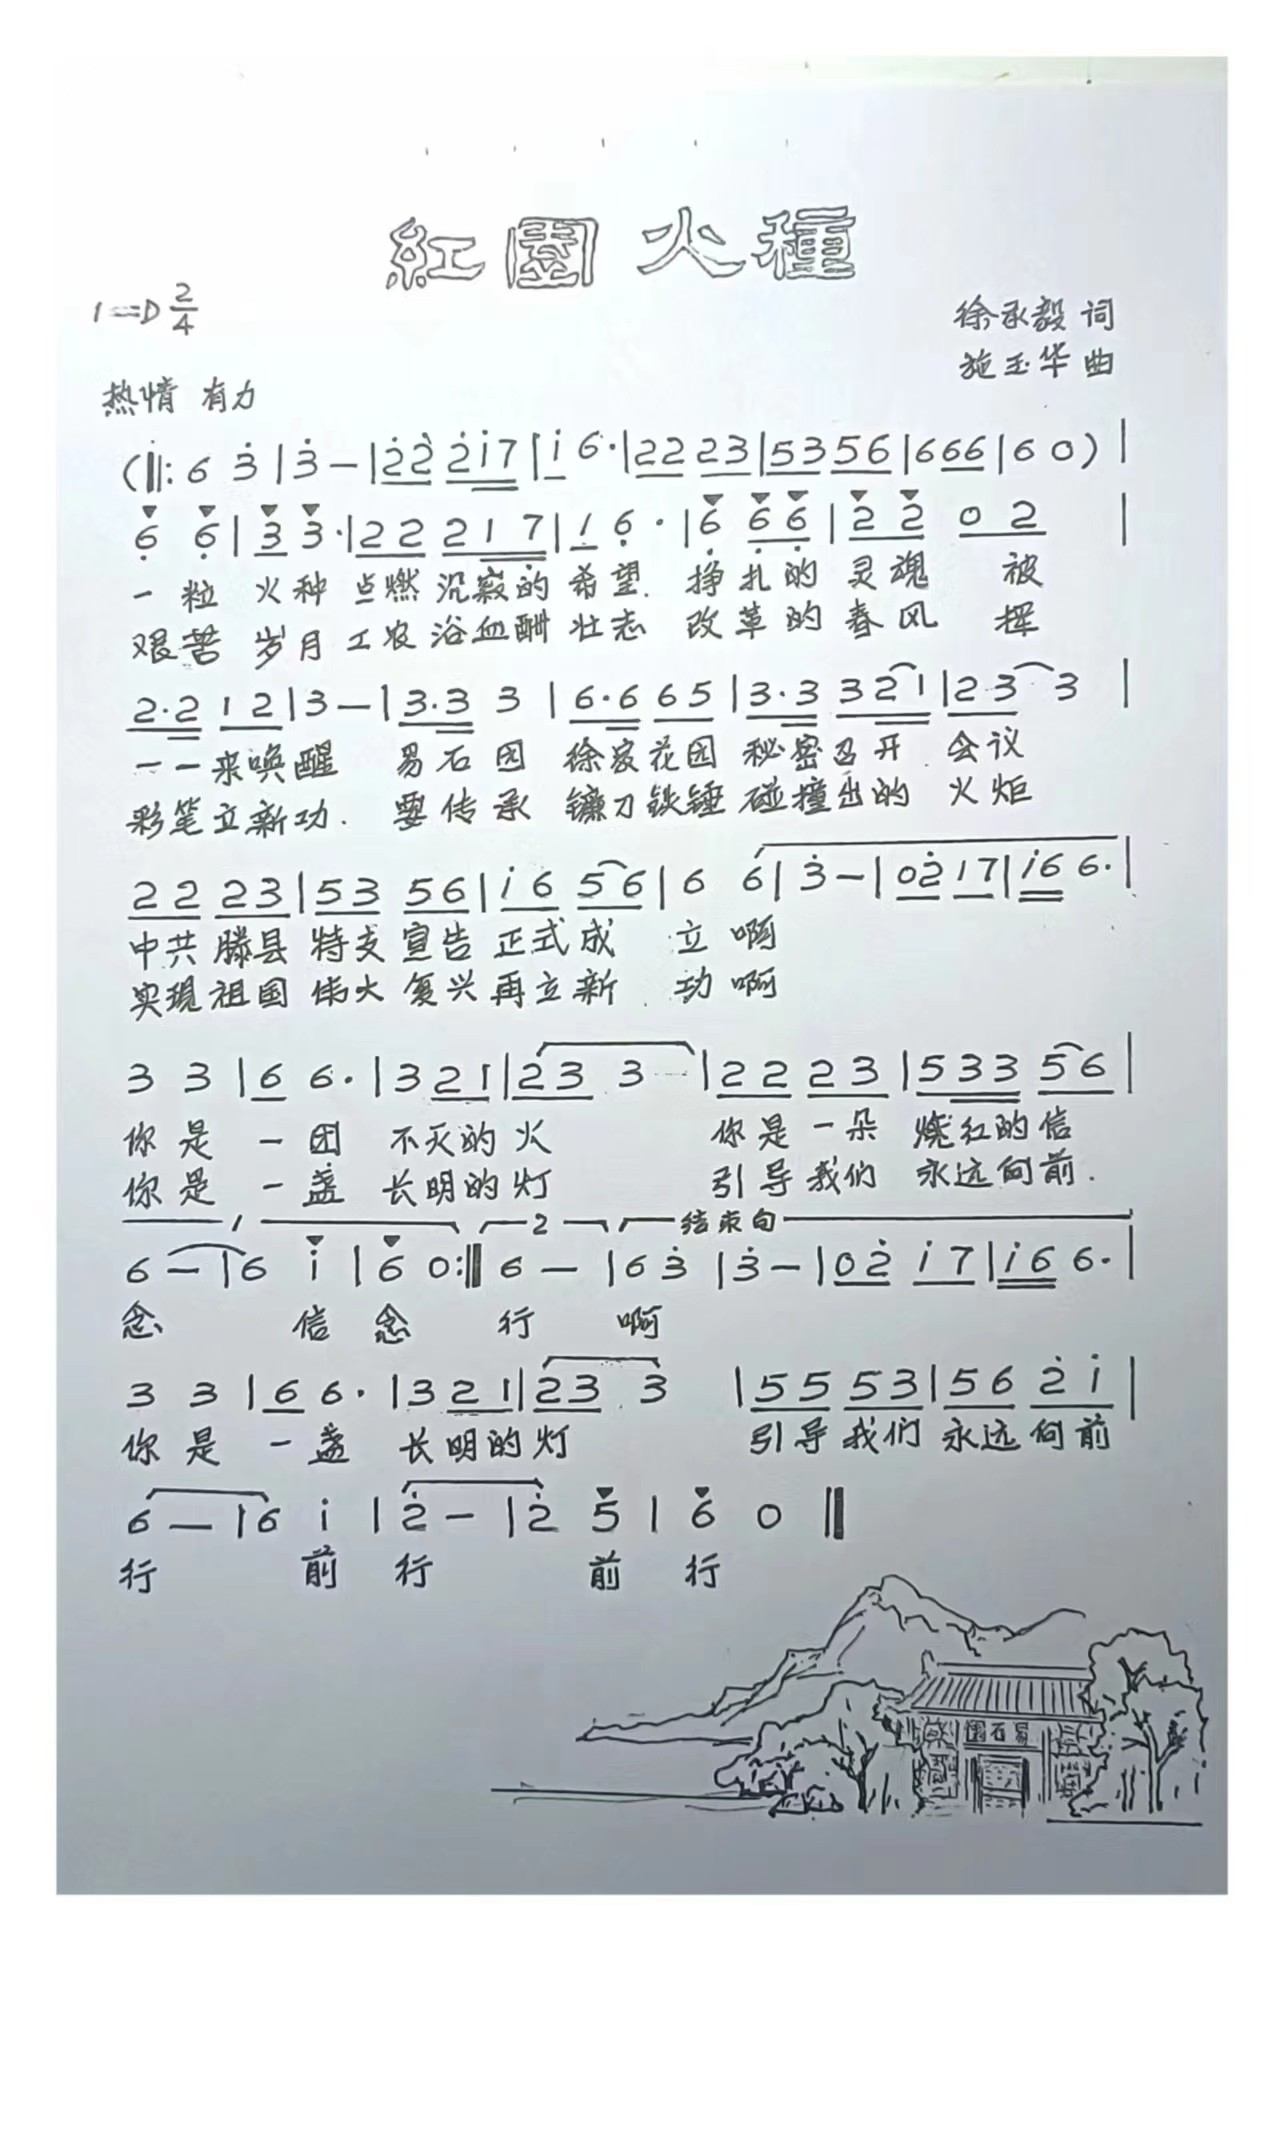 紅園火種
1=D 2/4
徐承毅 词
施玉华 曲
热情 有力
(‖: 6 3̇ | 3̇ — | 2̇2̇ 2̇i7 | i 6· | 22 23 | 53 56 | 666 | 6 0 ) |
6̣ 6̣ | 3 3· | 22 217̣ | 1 6̣· | 6̣ 6̣6̣ | 2 2 0 2 |
一粒 火种 点燃 沉寂的 希望. 挣扎的 灵魂 被
艰苦 岁月 工农 浴血酬 壮志 改革的 春风 挥
2·2 12 | 3 — | 3·3 3 | 6·6 65 | 3·3 321 | 23 3 |
一一来唤醒 易石园 徐家花园 秘密召开 会议
彩笔立新功. 要传承 镰刀铁锤 碰撞出的 火炬
22 23 | 53 56 | i6 56 | 6 6 | 3̇ — | 02̇ 17 | i6 6· |
中共 滕县 特支 宣告 正式成 立 啊
实现祖国 伟大 复兴 再立新 功 啊
3 3 | 6 6· | 3 21 | 23 3 | 22 23 | 533 56 |
你是 一团 不灭的火 你是一朵 烧红的信
你是 一盏 长明的灯 引导我们 永远向前.
1 2 结束句
6 — | 6 i | 6 0 :‖ 6 — | 6 3̇ | 3̇ — | 02̇ i7 | i6 6· |
念 信念 行 啊
3 3 | 6 6· | 3 21 | 23 3 | 55 53 | 56 2̇i |
你是 一盏 长明的灯 引导我们 永远向前
6 — | 6 i | 2̇ — | 2̇ 5 | 6 0 ‖
行 前 行 前 行
園石易